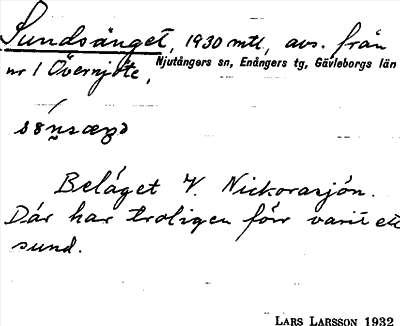 Sundsänget, 1930 mtl, avs. från
nr 1 Övernjöte,
Njutångers sn, Enångers tg, Gävleborgs län
Beläget V. Nickorasjön.
Där har troligen förr varit ett
sund.
LARS LARSSON 1932